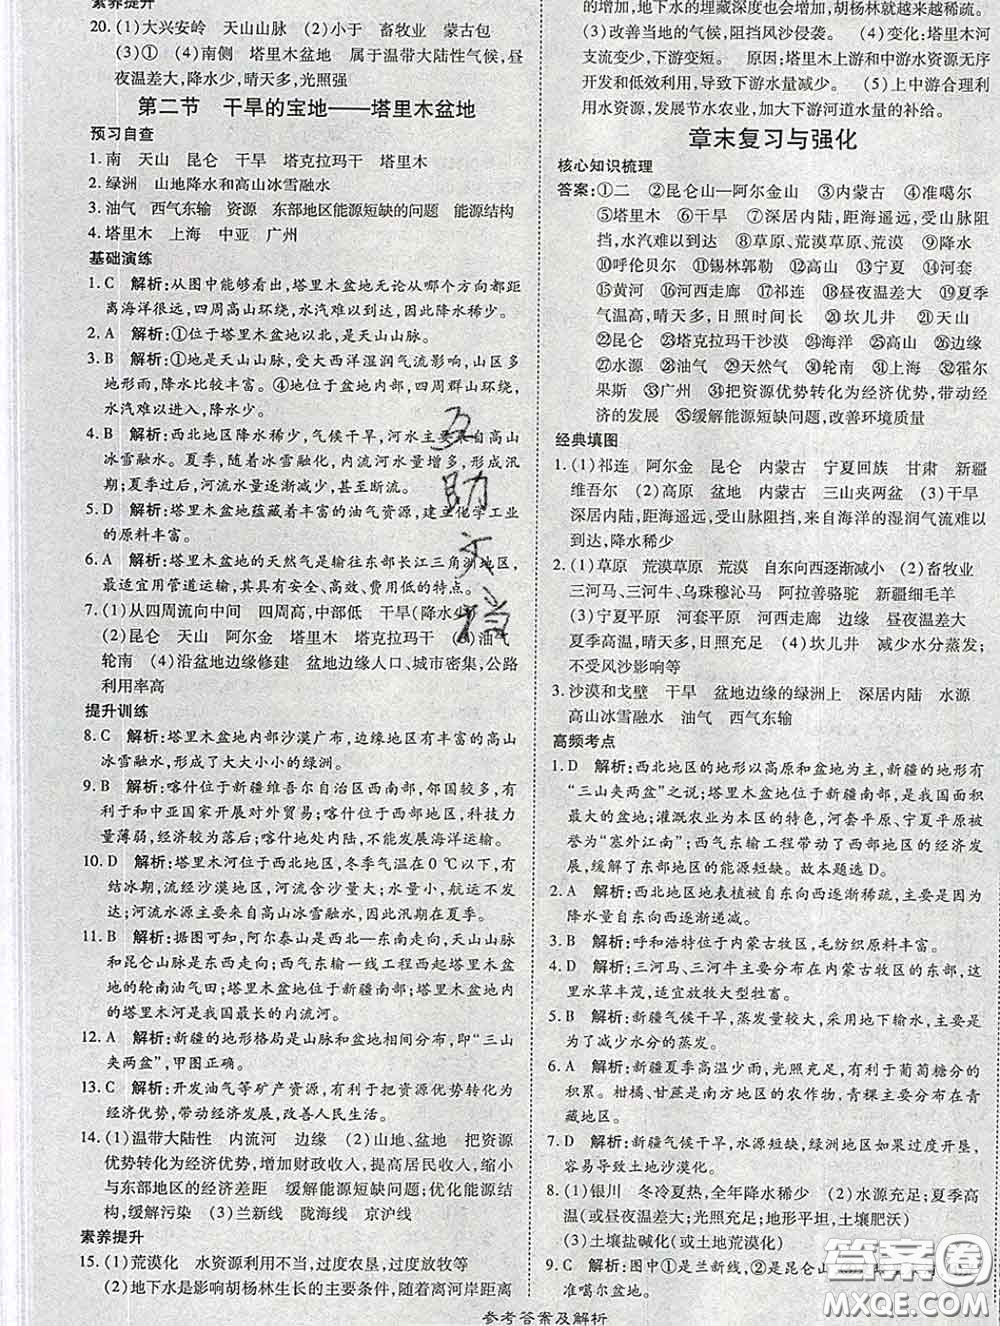 素养提升
20. (1)大兴安岭 天山山脉 (2)小于 畜牧业 蒙古包
(3)① (4)南侧 塔里木盆地 属于温带大陆性气候,昼
夜温差大,降水少,晴天多,光照强
第二节 干旱的宝地——塔里木盆地
预习自查
1. 南 天山 昆仑 干旱 塔克拉玛干 塔里木
2. 绿洲 山地降水和高山冰雪融水
3. 油气 西气东输 资源 东部地区能源短缺的问题 能源结构
4. 塔里木 上海 中亚 广州
基础演练
1. C 解析:从图中能够看出,塔里木盆地无论从哪个方向都距
离海洋很远,四周高山环绕,水汽难以到达,因此降水稀少。
2. A 解析:①位于塔里木盆地以北,是天山山脉。
3. B 解析:①地是天山山脉,受大西洋湿润气流影响,山区多
地形雨,降水比较丰富。④地位于盆地内部,四周群山环绕,
水汽难以进入,降水少。
4. B 解析:西北地区降水稀少,气候干旱,河水主要来自高山
冰雪融水。夏季,随着冰雪融化,内流河水量增多,形成汛
期;夏季过后,河流水量逐渐减少,甚至断流。
5. D 解析:塔里木盆地蕴藏着丰富的油气资源,建立化学工业
的原料丰富。
6. A 解析:塔里木盆地的天然气是输往东部长江三角洲地区,
最适宜用管道运输,其具有安全、高效、费用低的特点。
7. (1)从四周流向中间 四周高,中部低 干旱(降水少)
(2)昆仑 天山 阿尔金 塔里木 塔克拉玛干 (3)油气
轮南 (4)沿盆地边缘修建 盆地边缘人口、城市密集,公路
利用率高
提升训练
8. C 解析:塔里木盆地内部沙漠广布,边缘地区有丰富的高山
冰雪融水,形成了大大小小的绿洲。
9. B 解析:喀什位于新疆维吾尔自治区西南部,邻国较多,有
利于和中亚国家开展对外贸易;喀什位于西部地区,科技力
量薄弱,经济较为落后;喀什地处内陆,不能发展海洋运输。
10. D 解析:塔里木河位于西北地区,冬季气温在0 ℃以下,有
结冰期,流经沙漠地区,河流含沙量大;水量小,航运不发
达;河流水源主要来自高山冰雪融水,因此汛期在夏季。
11. B 解析:据图可知,阿尔泰山是西北—东南走向,天山山脉
和昆仑山脉是东西走向;西气东输一线工程西起塔里木盆
地的轮南油气田;塔里木盆地位于新疆南部;塔里木盆地内
的塔里木河是我国最长的内流河。
12. A 解析:新疆的地形格局是山脉和盆地相间分布,即“三山
夹两盆”,甲图正确。
13. C 解析:开发油气等矿产资源,有利于把资源优势转化为
经济优势,带动经济发展,改善人民生活。
14. (1)温带大陆性 内流河 边缘 (2)山地、盆地 把资源
优势转化为经济优势,增加财政收入,提高居民收入,缩小
与东部地区的经济差距 缓解能源短缺问题;优化能源结
构,缓解污染 (3)兰新线 陇海线 京沪线
素养提升
15. (1)荒漠化 水资源利用不当,过度农垦,过度放牧等
(2)地下水是影响胡杨林生长的主要条件,随着离河岸距离
的增加,地下水的埋藏深度也会增加,胡杨林就越来越稀疏。
(3)改善当地的气候,阻挡风沙侵袭。 (4)变化:塔里木河
支流变少,下游变短。 原因:塔里木上游和中游水资源无序
开发和低效利用,导致下游水量减少。 (5)上中游合理利
用水资源,发展节水农业,加大下游河道水量的补给。
章末复习与强化
核心知识梳理
答案:①二 ②昆仑山—阿尔金山 ③内蒙古 ④准噶尔
⑤塔里木 ⑥干旱 ⑦深居内陆,距海遥远,受山脉阻
挡,水汽难以到达 ⑧草原、荒漠草原、荒漠 ⑨降水
⑩呼伦贝尔 ⑪锡林郭勒 ⑫高山 ⑬宁夏 ⑭河套
⑮黄河 ⑯河西走廊 ⑰水源 ⑱昼夜温差大 ⑲夏季
气温高,晴天多,日照时间长 ⑳坎儿井 ㉑天山
㉒昆仑 ㉓塔克拉玛干沙漠 ㉔海洋 ㉕高山 ㉖边缘
㉗水源 ㉘油气 ㉙天然气 ㉚轮南 ㉛上海 ㉜霍尔
果斯 ㉝广州 ㉞把资源优势转化为经济优势,带动经
济的发展 ㉟缓解能源短缺问题,改善环境质量
经典填图
1. (1)祁连 阿尔金 昆仑 内蒙古 宁夏回族 甘肃 新疆
维吾尔 (2)高原 盆地 内蒙古 三山夹两盆 (3)干旱
深居内陆,距海遥远,受山脉阻挡,来自海洋的湿润气流难以
到达,降水稀少
2. (1)草原 荒漠草原 荒漠 自东向西逐渐减小 (2)畜牧业
三河马、三河牛、乌珠穆沁马 阿拉善骆驼 新疆细毛羊
(3)宁夏平原 河套平原 河西走廊 绿洲 昼夜温差大
夏季高温,晴天多,日照充足 (4)坎儿井 减少水分蒸发;
不受风沙影响等
3. 沙漠和戈壁 干旱 盆地边缘的绿洲上 深居内陆 水源
高山冰雪融水 油气 西气东输
高频考点
1. D 解析:西北地区的地形以高原和盆地为主,新疆的地形有
“三山夹两盆”之说;塔里木盆地位于新疆南部,是我国面积
最大的盆地;灌溉农业为本区的特色,河套平原、宁夏平原被
誉为“塞外江南”;西气东输工程带动了西部地区的经济发
展,缓解了东部地区的能源短缺。故本题选D。
2. A 解析:西北地区地表植被自东向西逐渐稀疏,主要是因为
降水量自东向西逐渐递减。
3. B 解析:呼和浩特位于内蒙古牧区,毛纺织原料丰富。
4. D 解析:三河马、三河牛主要分布在内蒙古牧区的东部,这
里水草丰茂,适宜放牧大型牲畜。
5. B 解析:新疆气候干旱,蒸发量较大,采用地下输水,主要是
为了减少水分的蒸发。
6. A 解析:新疆夏季高温少雨,光照充足,有利于葡萄糖分的
积累。柑橘、甘蔗是南方地区的农作物,青稞主要分布在青
藏地区。
7. D 解析:新疆气候干旱,水源短缺,绿洲地区如果过度开垦,
容易形成土地沙漠化。
8. (1)银川 冬冷夏热,全年降水稀少 (2)水源充足;夏季高
温(或昼夜温差大);光照充足;地形平坦,土壤肥沃
(3)土壤盐碱化(或土地荒漠化)
9. C 解析:图中①是兰新线,②是昆仑山
准噶尔盆地。
参考答案及解析
互助文档
答案圈
MXQE.COM